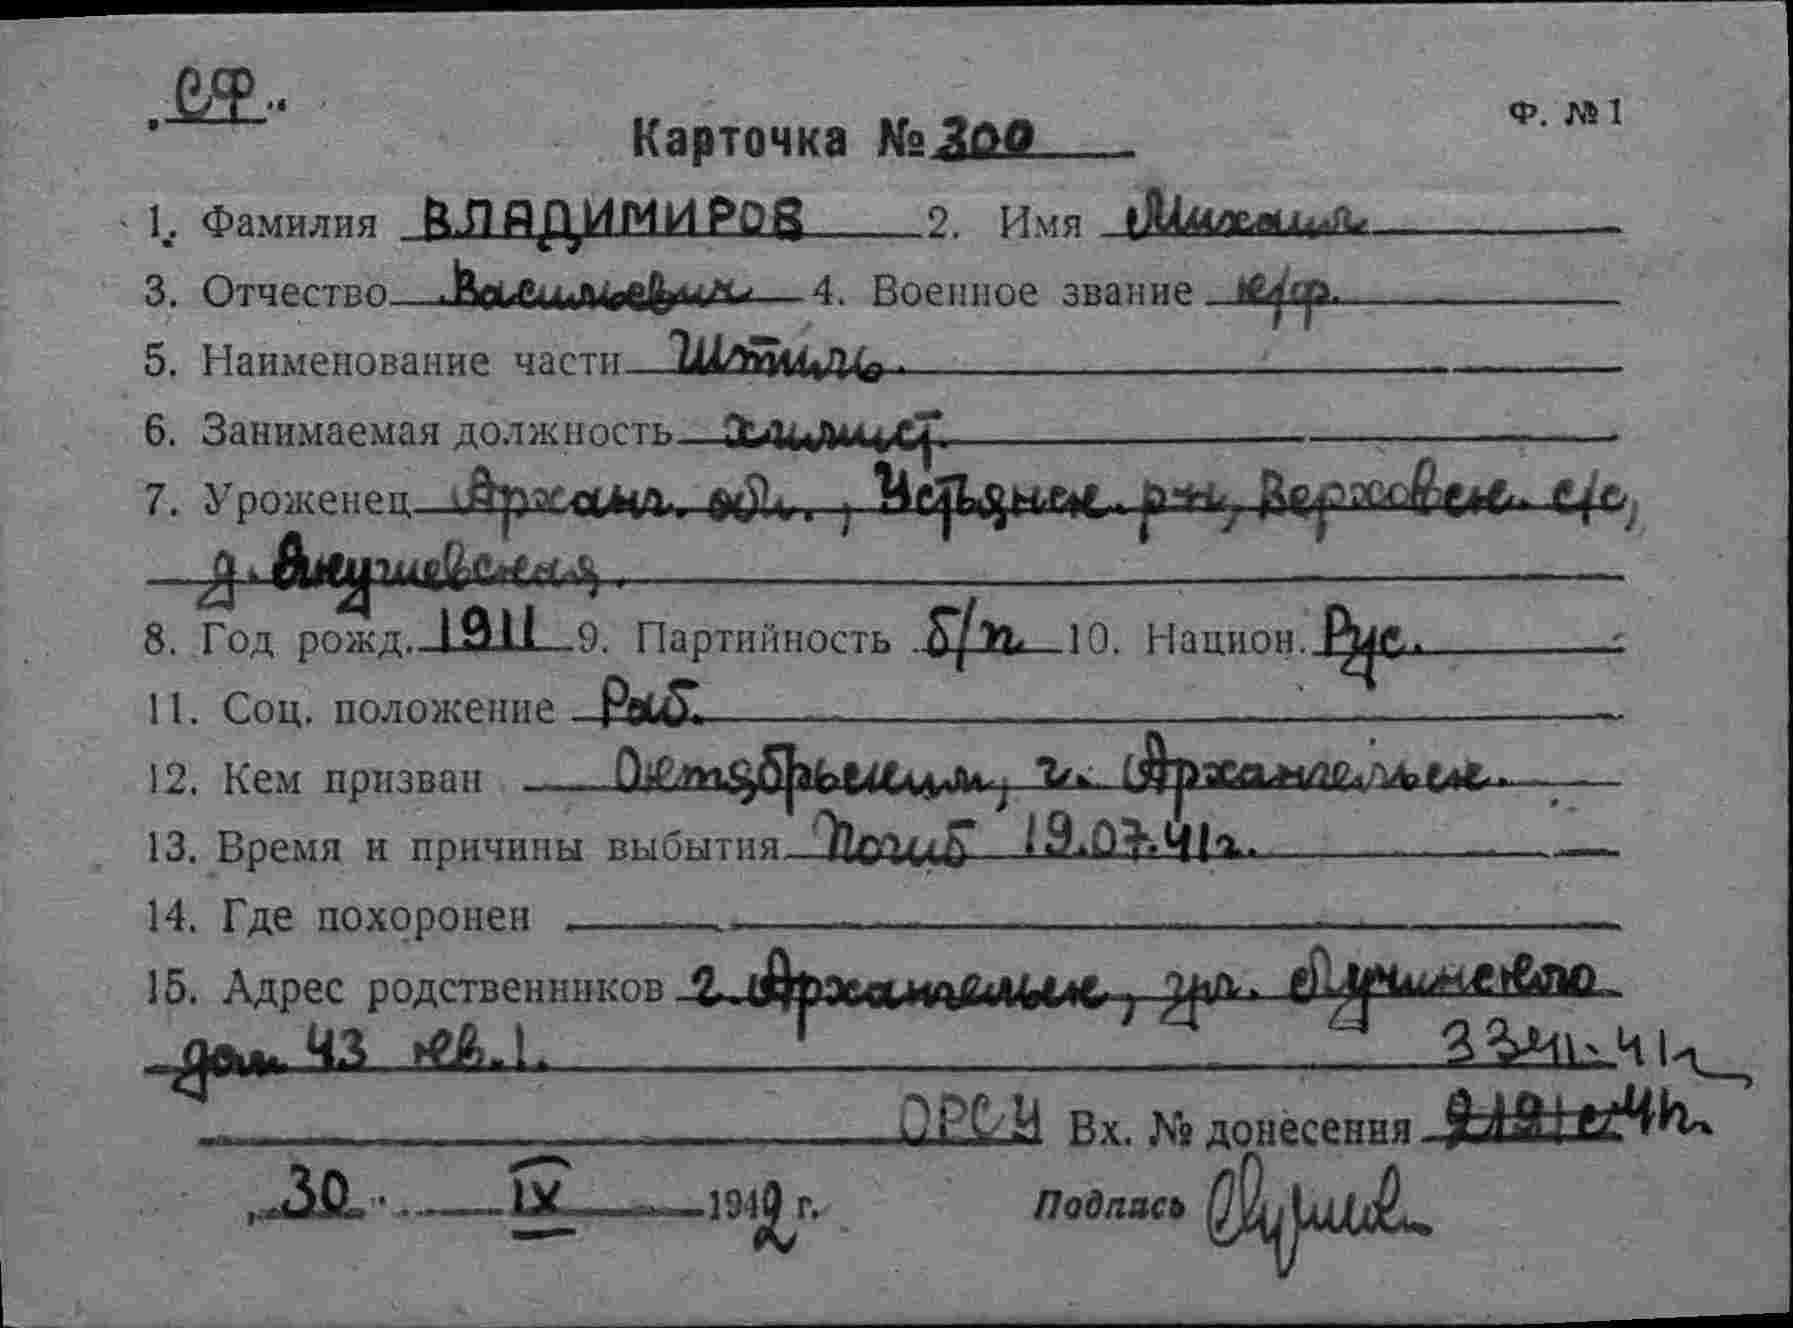 СФ.
Ф. №1
Карточка №300
1. Фамилия ВЛАДИМИРОВ 2. Имя Михаил
3. Отчество Васильевич 4. Военное звание к/ф.
5. Наименование части Штиль.
6. Занимаемая должность химист.
7. Уроженец Арханг. обл., Устьянск. р-н, Верховск. с/с,
д.
8. Год рожд. 1911 9. Партийность б/п 10. Национ. Рус.
11. Соц. положение Раб.
12. Кем призван Октябрьским, г. Архангельск.
13. Время и причины выбытия Погиб 19.07.41г.
14. Где похоронен
15. Адрес родственников г. Архангельск, ул. Лучинского
дом 43 кв. 1.
ОРСУ Вх. № донесения
30 IX 1942 г. Подпись